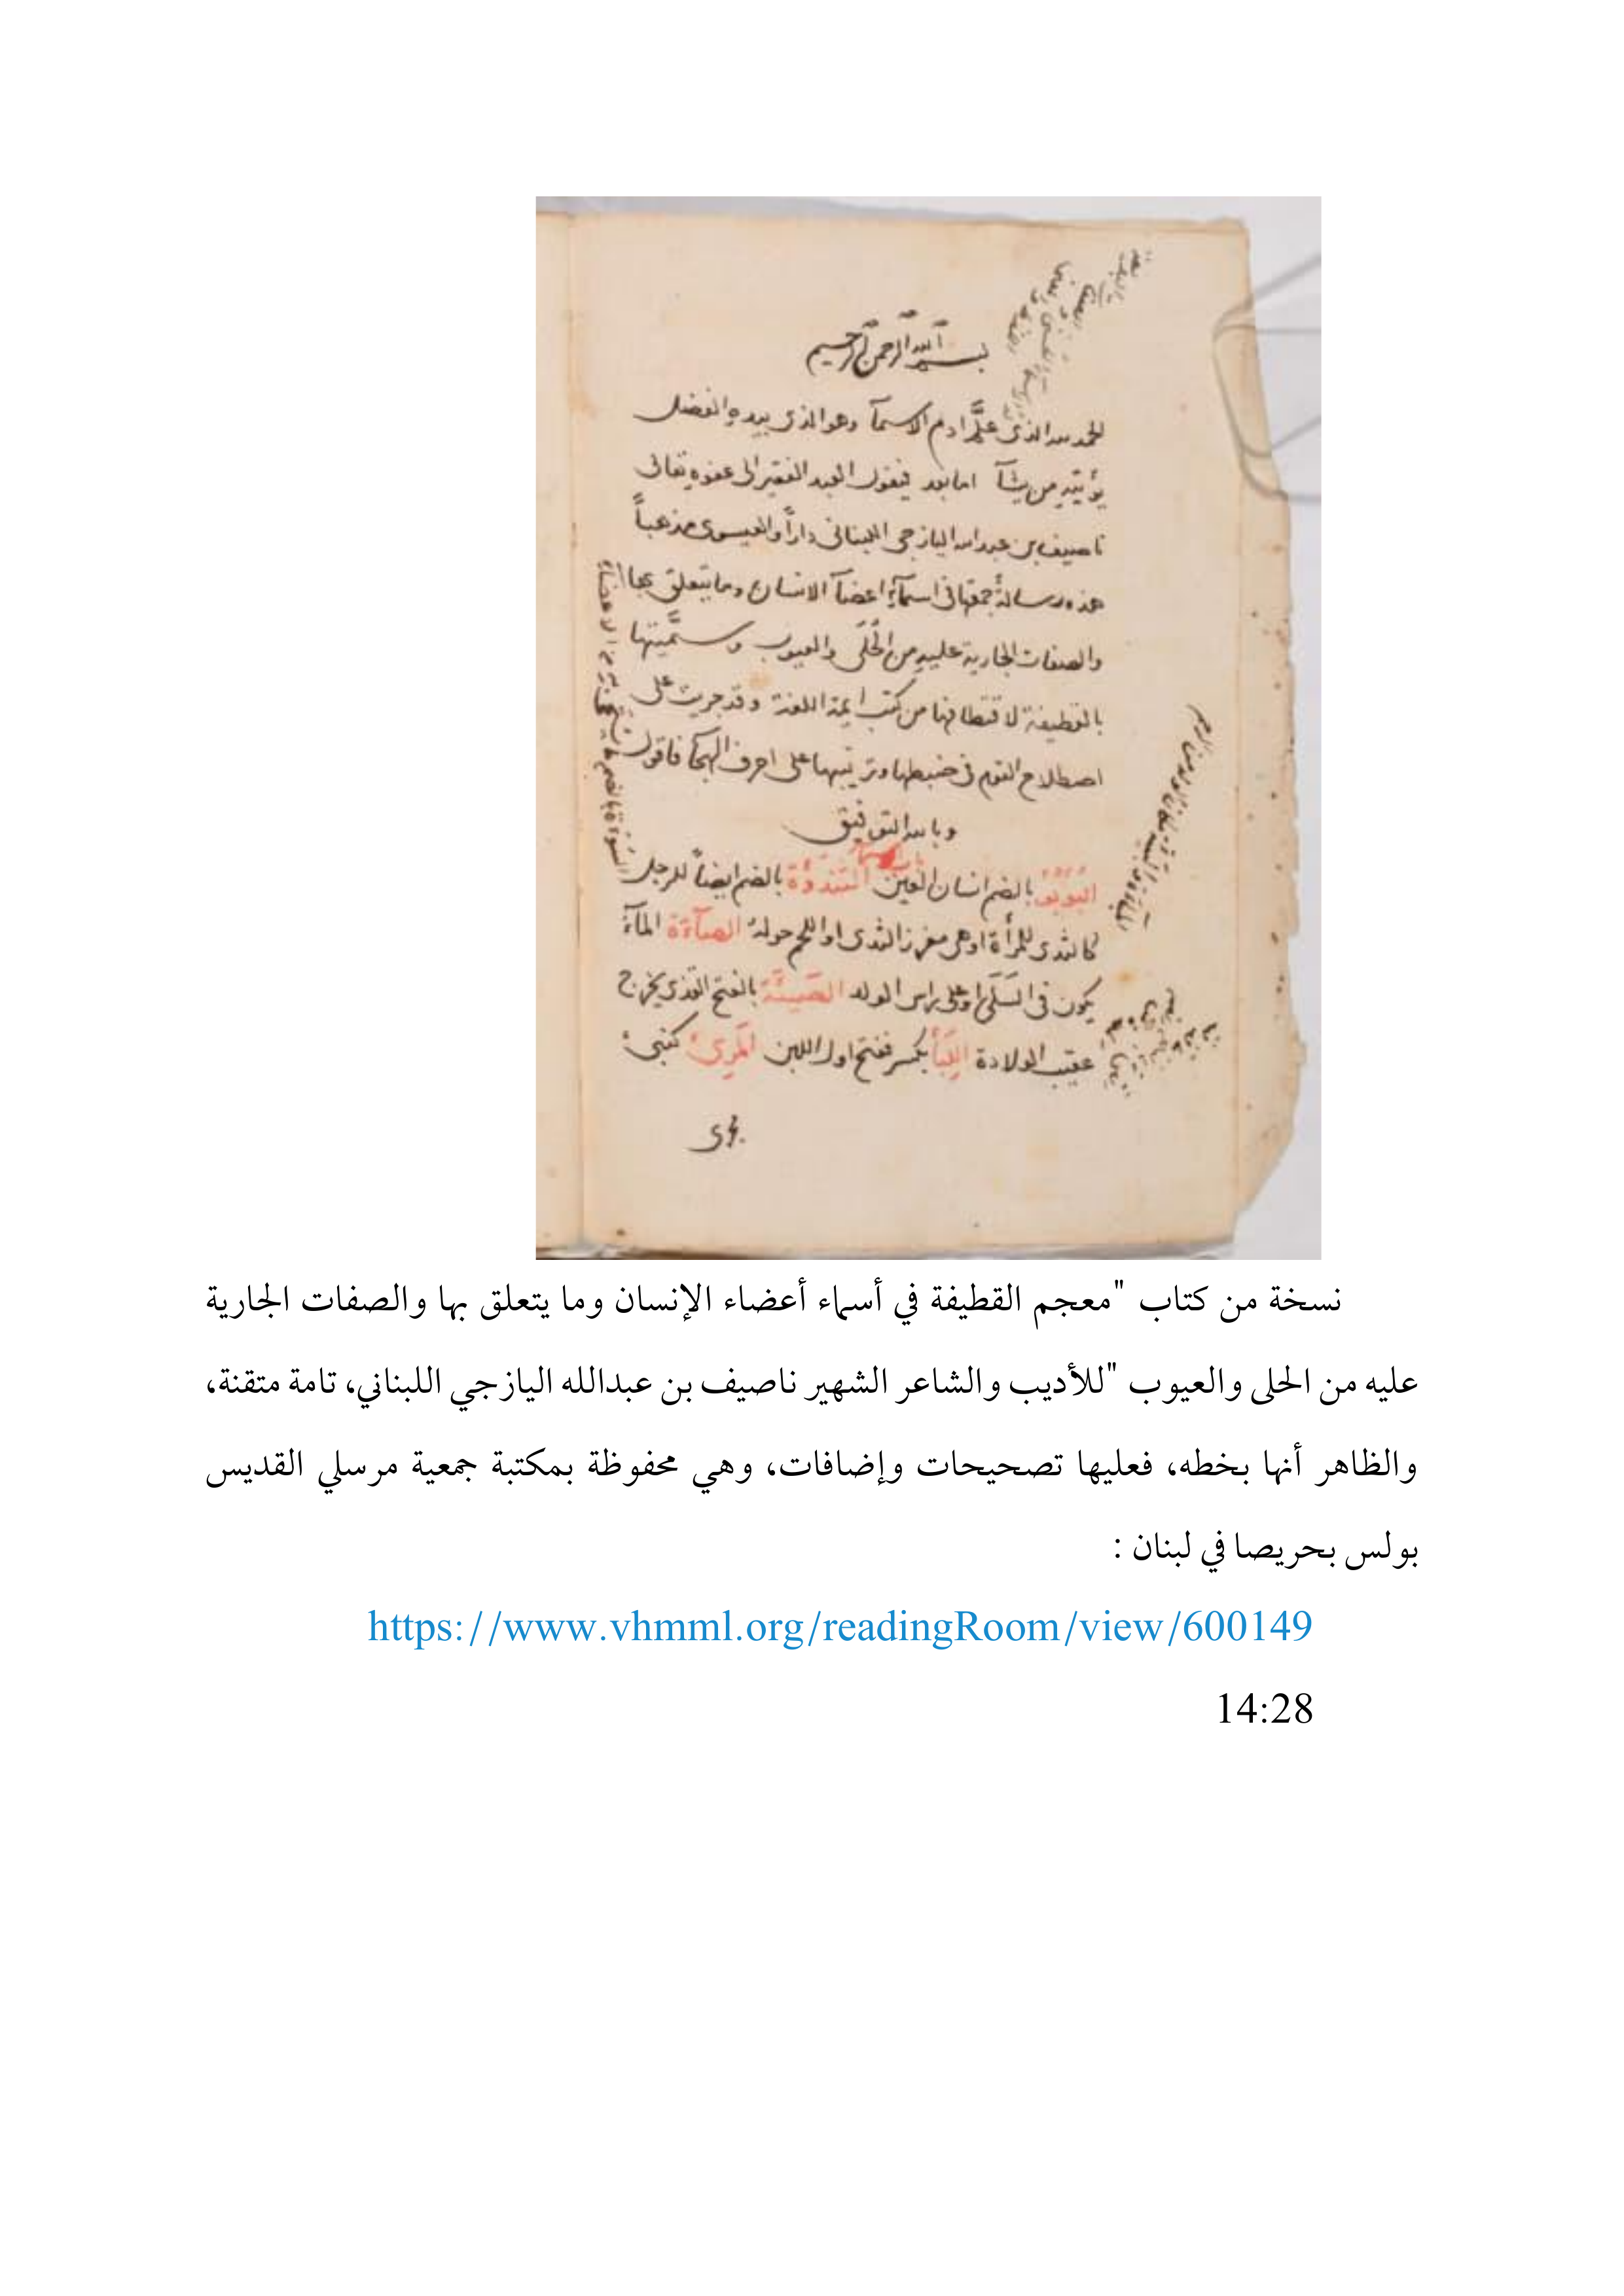 بسم الله الرحمن الرحيم
الحمد لله الذى علَّم ادم الاسمآ وهو الذى بيده الفضل
يؤتيه من يشآ اما بعد فيقول العبد الفقير الى عفوه تعالى
ناصيف بن عبد الله اليازجى اللبنانى داراً والعيسوى مذهباً
هذه رسالةٌ جمعتها فى اسمآء اعضآ الانسان وما يتعلق بها
والصفات الجارية عليه من الحُلَى والعيوب وسمَّيتها
بالقطيفة لاقتطافها من كتب ايمة اللغة وقد جريت على
اصطلاح القوم فى ضبطها وترتيبها على احرف الهجآ فاقول
وبالله التوفيق
البُؤبُؤ بالضم انسان العين الثندؤة بالضم ايضاً للرجل
كالثدى للمرأة اوهى مغرز الثدى او اللحم حوله الصآءة المآء
يكون فى السَلَى او على راس الولد بالفتح القذى يخرج
عقيب الولادة اللِبَأ بكسر ففتح اول اللبن المَرِىء كغنى
مجرى
نسخة من كتاب "معجم القطيفة في أسماء أعضاء الإنسان وما يتعلق بها والصفات الجارية
عليه من الحلى والعيوب "للأديب والشاعر الشهير ناصيف بن عبدالله اليازجي اللبناني، تامة متقنة،
والظاهر أنها بخطه، فعليها تصحيحات وإضافات، وهي محفوظة بمكتبة جمعية مرسلي القديس
بولس بحريصا في لبنان :
https://www.vhmml.org/readingRoom/view/600149
14:28